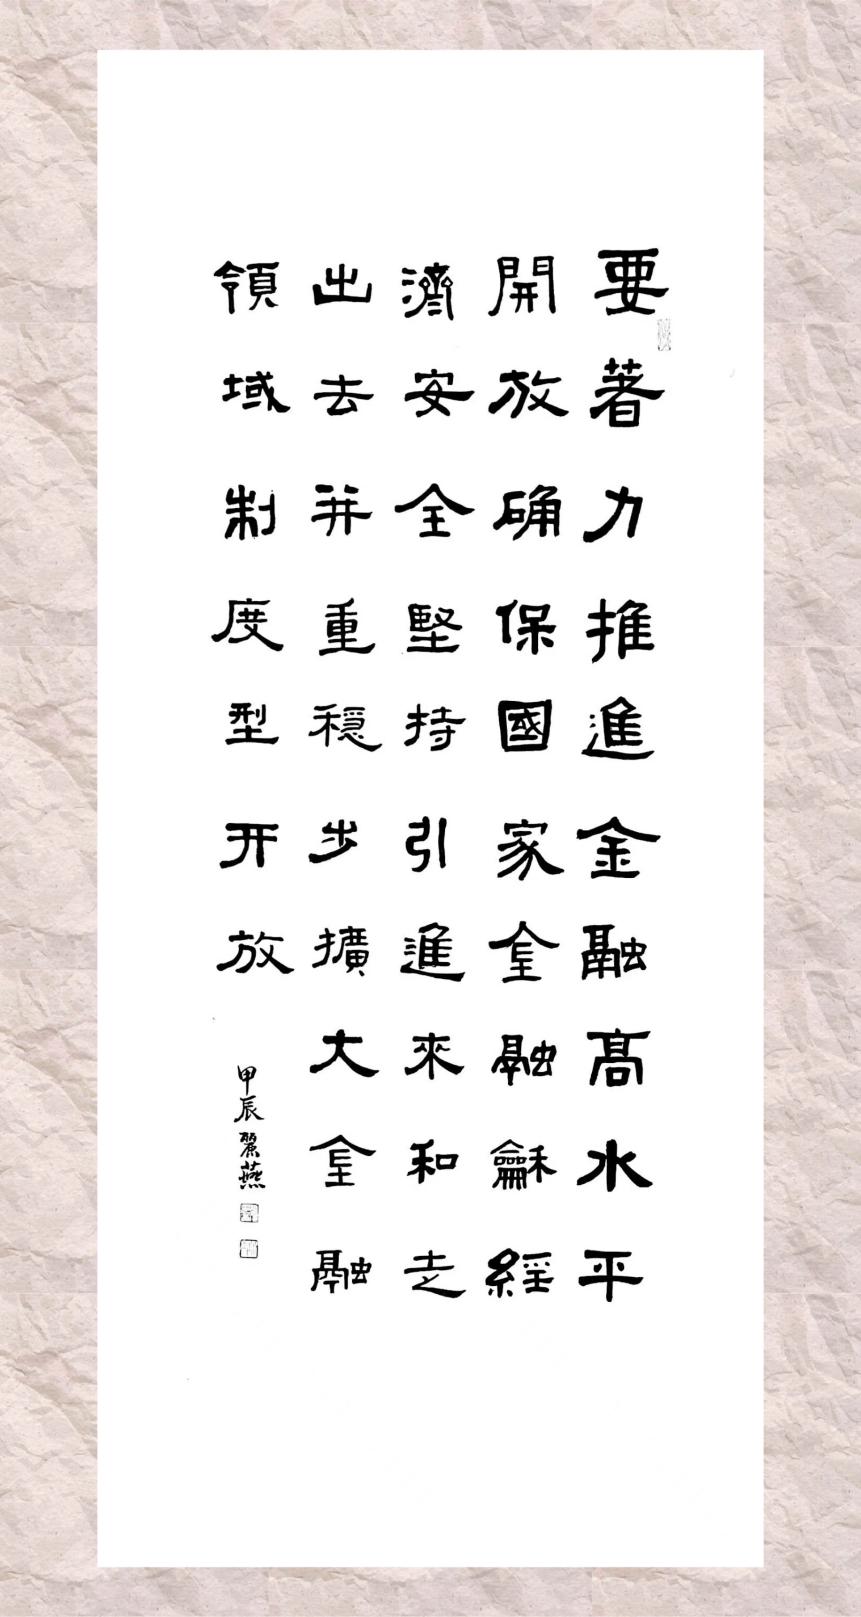 要著力推進金融高水平
開放确保國家金融龢經
濟安全堅持引進來和走
出去并重穩步擴大金融
領域制度型开放
甲辰 麗燕